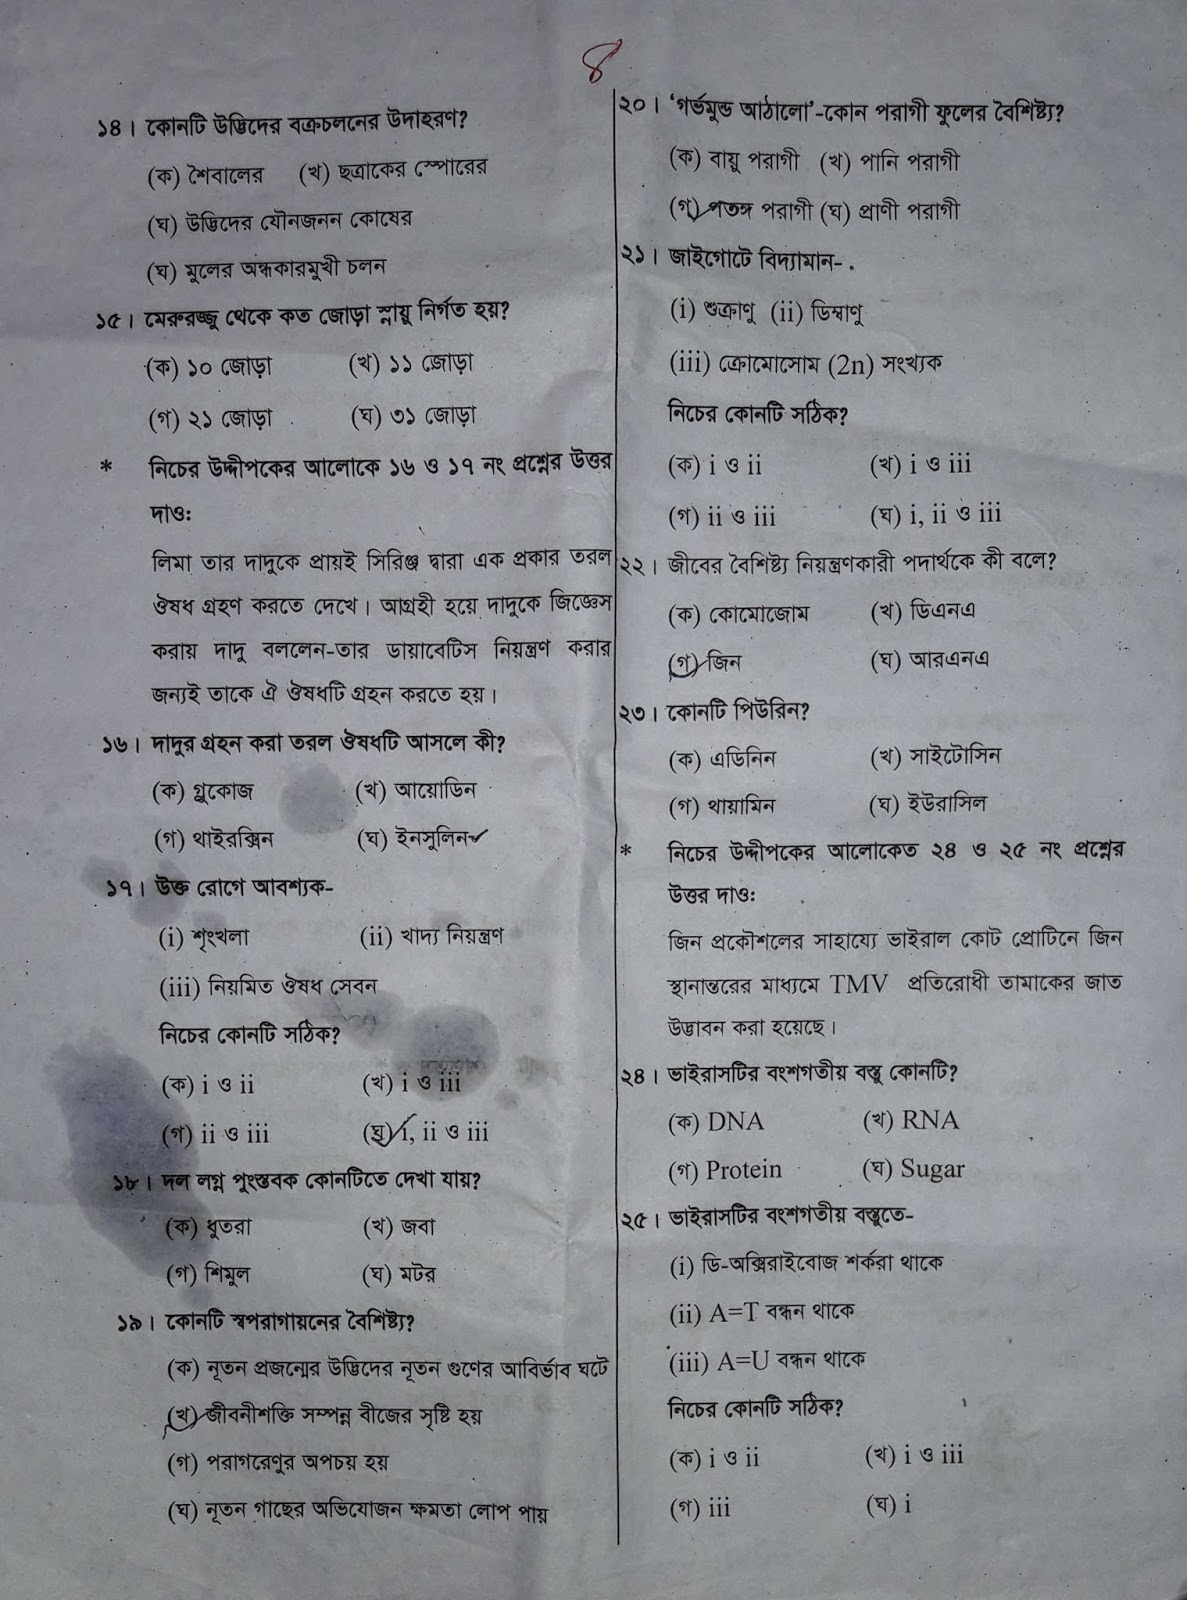 8
১৪। কোনটি উদ্ভিদের বক্রচলনের উদাহরণ?
(ক) শৈবালের (খ) ছত্রাকের স্পোরের
(ঘ) উদ্ভিদের যৌনজনন কোষের
(ঘ) মূলের অন্ধকারমুখী চলন
১৫। মেরুরজ্জু থেকে কত জোড়া স্নায়ু নির্গত হয়?
(ক) ১০ জোড়া (খ) ১১ জোড়া
(গ) ২১ জোড়া (ঘ) ৩১ জোড়া
* নিচের উদ্দীপকের আলোকে ১৬ ও ১৭ নং প্রশ্নের উত্তর
দাও:
লিমা তার দাদুকে প্রায়ই সিরিঞ্জ দ্বারা এক প্রকার তরল
ঔষধ গ্রহণ করতে দেখে। আগ্রহী হয়ে দাদুকে জিজ্ঞেস
করায় দাদু বললেন-তার ডায়াবেটিস নিয়ন্ত্রণ করার
জন্যই তাকে ঐ ঔষধটি গ্রহন করতে হয়।
১৬। দাদুর গ্রহন করা তরল ঔষধটি আসলে কী?
(ক) গ্লুকোজ (খ) আয়োডিন
(গ) থাইরক্সিন (ঘ) ইনসুলিন
১৭। উক্ত রোগে আবশ্যক-
(i) শৃংখলা (ii) খাদ্য নিয়ন্ত্রণ
(iii) নিয়মিত ঔষধ সেবন
নিচের কোনটি সঠিক?
(ক) i ও ii (খ) i ও iii
(গ) ii ও iii (ঘ) i, ii ও iii
১৮। দল লগ্ন পুংস্তবক কোনটিতে দেখা যায়?
(ক) ধুতরা (খ) জবা
(গ) শিমুল (ঘ) মটর
১৯। কোনটি স্বপরাগায়নের বৈশিষ্ট্য?
(ক) নূতন প্রজন্মের উদ্ভিদের নূতন গুণের আবির্ভাব ঘটে
(খ) জীবনীশক্তি সম্পন্ন বীজের সৃষ্টি হয়
(গ) পরাগরেণুর অপচয় হয়
(ঘ) নূতন গাছের অভিযোজন ক্ষমতা লোপ পায়
২০। 'গর্ভমুন্ড আঠালো'-কোন পরাগী ফুলের বৈশিষ্ট্য?
(ক) বায়ু পরাগী (খ) পানি পরাগী
(গ) পতঙ্গ পরাগী (ঘ) প্রাণী পরাগী
২১। জাইগোটে বিদ্যামান-
(i) শুক্রাণু (ii) ডিম্বাণু
(iii) ক্রোমোসোম (2n) সংখ্যক
নিচের কোনটি সঠিক?
(ক) i ও ii (খ) i ও iii
(গ) ii ও iii (ঘ) i, ii ও iii
২২। জীবের বৈশিষ্ট্য নিয়ন্ত্রণকারী পদার্থকে কী বলে?
(ক) কোমোজোম (খ) ডিএনএ
(গ) জিন (ঘ) আরএনএ
২৩। কোনটি পিউরিন?
(ক) এডিনিন (খ) সাইটোসিন
(গ) থায়ামিন (ঘ) ইউরাসিল
* নিচের উদ্দীপকের আলোকেত ২৪ ও ২৫ নং প্রশ্নের
উত্তর দাও:
জিন প্রকৌশলের সাহায্যে ভাইরাল কোট প্রোটিনে জিন
স্থানান্তরের মাধ্যমে TMV প্রতিরোধী তামাকের জাত
উদ্ভাবন করা হয়েছে।
২৪। ভাইরাসটির বংশগতীয় বস্তু কোনটি?
(ক) DNA (খ) RNA
(গ) Protein (ঘ) Sugar
২৫। ভাইরাসটির বংশগতীয় বস্তুতে-
(i) ডি-অক্সিরাইবোজ শর্করা থাকে
(ii) A=T বন্ধন থাকে
(iii) A=U বন্ধন থাকে
নিচের কোনটি সঠিক?
(ক) i ও ii (খ) i ও iii
(গ) iii (ঘ) i